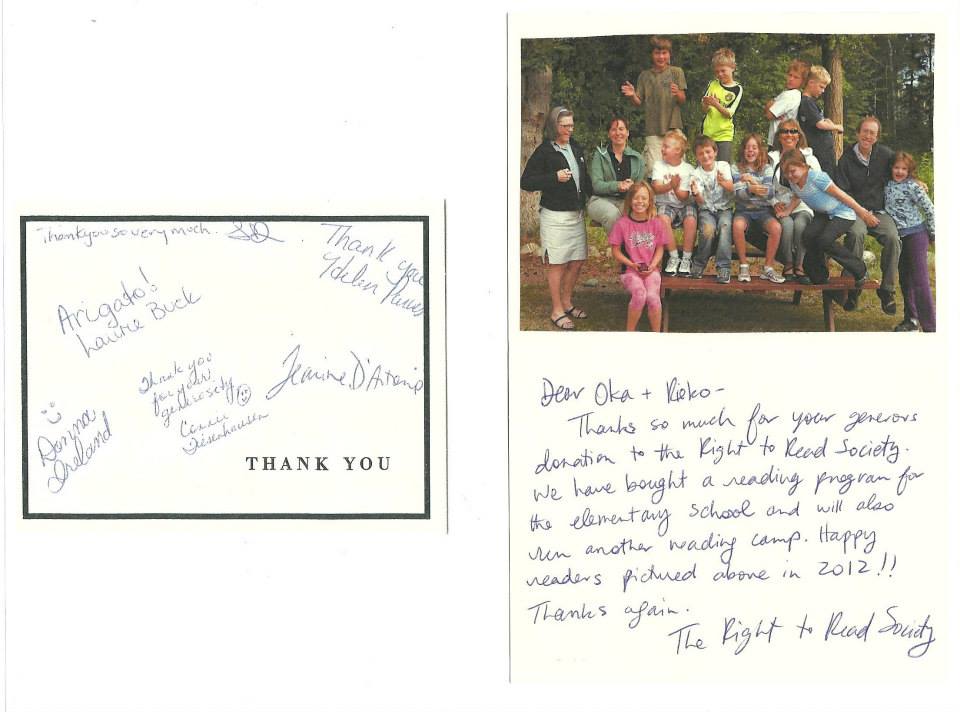 Thankyou so very much.
Thank you
Arigato!
Laurie Buck
Thank you
for your
generosity
Jeanine D'Antonio
Donna
Ireland
THANK YOU
Dear Oka + Rieko -
Thanks so much for your generous
donation to the Right to Read Society.
We have bought a reading program for
the elementary school and will also
run another reading camp. Happy
readers pictured above in 2012!!
Thanks again.
The Right to Read Society